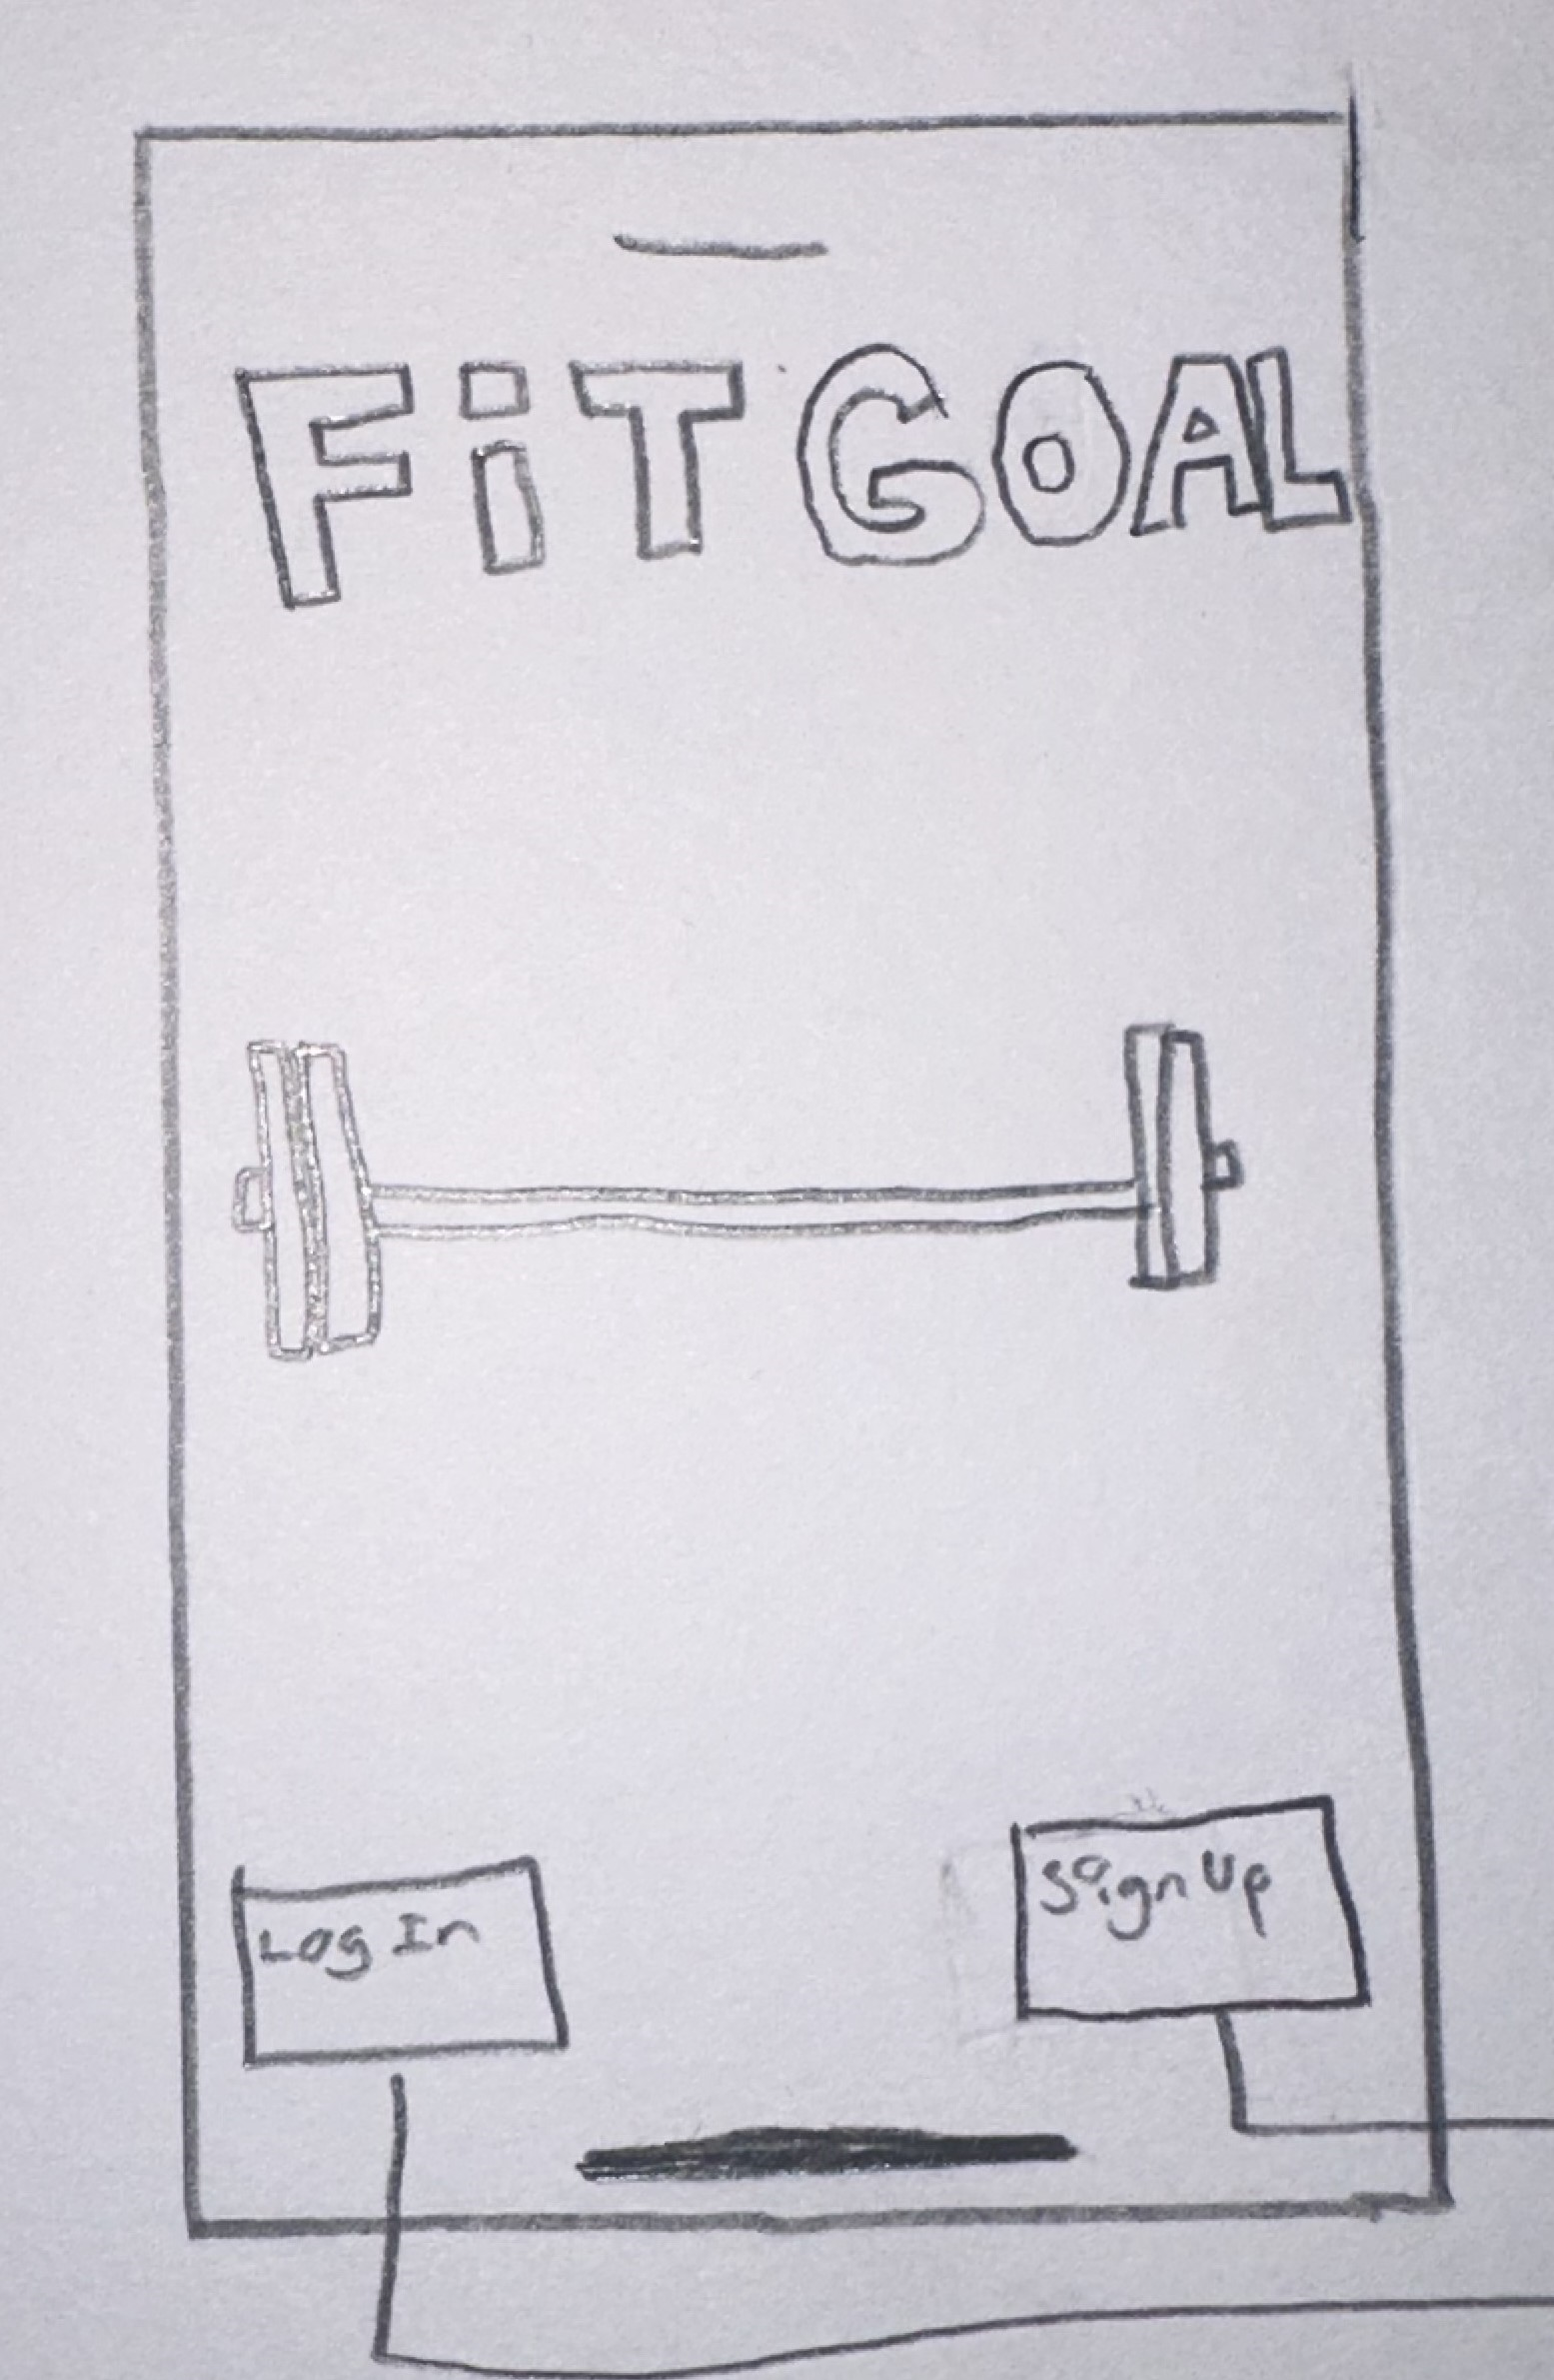 FiT GOAL
Log In
Sign Up